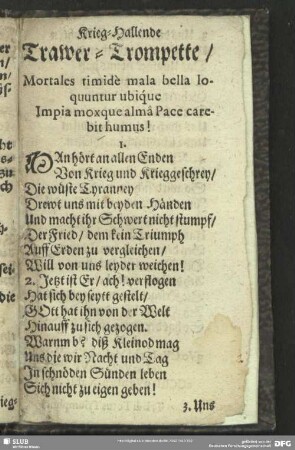 Krieg-Hallende
Trawer-Trompette /
Mortales timidè mala bella lo-
quuntur ubiq́ue
Impia moxque almâ Pace care-
bit humus!
1.
MAn hört an allen Enden
Von Krieg und Krieggeschrey /
Die wüste Tyranney
Drewt uns mit beyden Händen
Und macht ihr Schwert nicht stumpf /
Der Fried / dem kein Triumph
Auff Erden zu vergleichen /
Will von uns leyder weichen!
2. Jetzt ist Er / ach! verflogen
Hat sich beyseyt gestelt /
GOtt hat ihn von der Welt
Hinauff zu sich gezogen.
Warum diß Kleinod mag
Uns die wir Nacht und Tag
In schnöden Sünden leben
Sich nicht zu eigen geben!
3. Uns
SLUB